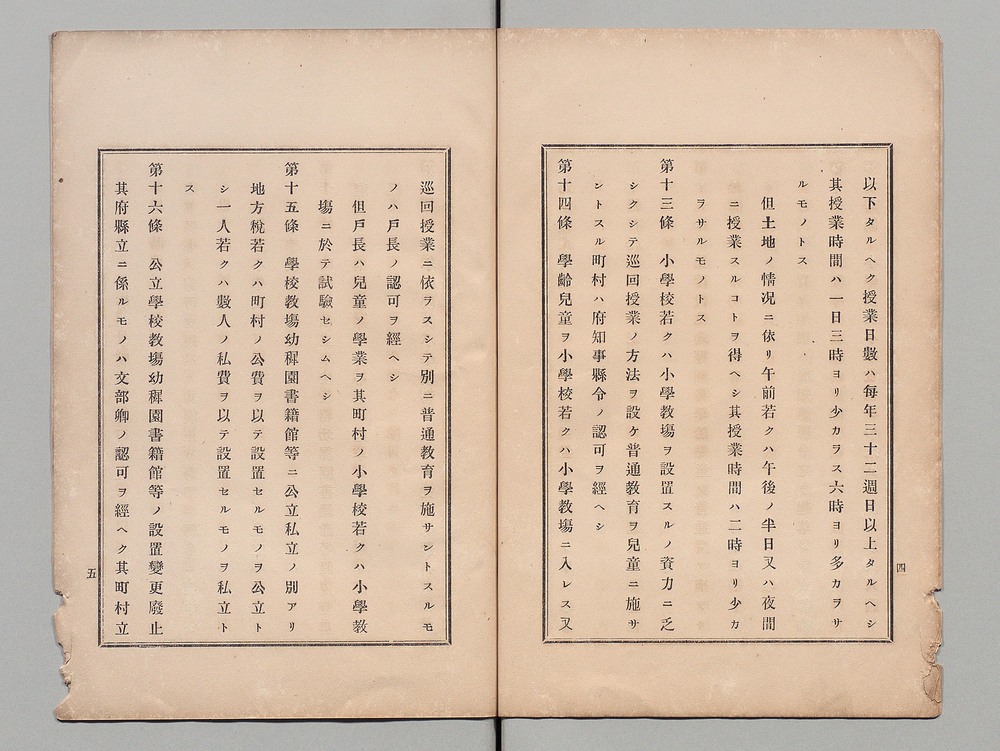 以下タルヘク授業日數ハ每年三十二週日以上タルヘシ
其授業時間ハ一日三時ヨリ少カラス六時ヨリ多カヲサ
ルモノトス
但土地ノ情况ニ依リ午前若クハ午後ノ半日又ハ夜間
ニ授業スルコトヲ得ヘシ其授業時間ハ二時ヨリ少カ
ヲサルモノトス
第十三條 小學校若クハ小學教塲ヲ設置スルノ資力ニ乏
シクシテ巡回授業ノ方法ヲ設ケ普通教育ヲ兒童ニ施サ
ントスル町村ハ府知事縣令ノ認可ヲ經ヘシ
第十四條 學齡兒童ヲ小學校若クハ小學教塲ニ入レス又
四
巡回授業ニ依ヲスシテ別ニ普通教育ヲ施サントスルモ
ノハ戸長ノ認可ヲ經ヘシ
但戸長ハ兒童ノ學業ヲ其町村ノ小學校若クハ小學教
塲ニ於テ試驗セシムヘシ
第十五條 學校教塲幼穉園書籍館等ニ公立私立ノ別アリ
地方稅若クハ町村ノ公費ヲ以テ設置セルモノヲ公立ト
シ一人若クハ數人ノ私費ヲ以テ設置セルモノヲ私立ト
ス
第十六條 公立學校教塲幼穉園書籍館等ノ設置變更廢止
其府縣立ニ係ルモノハ文部卿ノ認可ヲ經ヘク其町村立
五